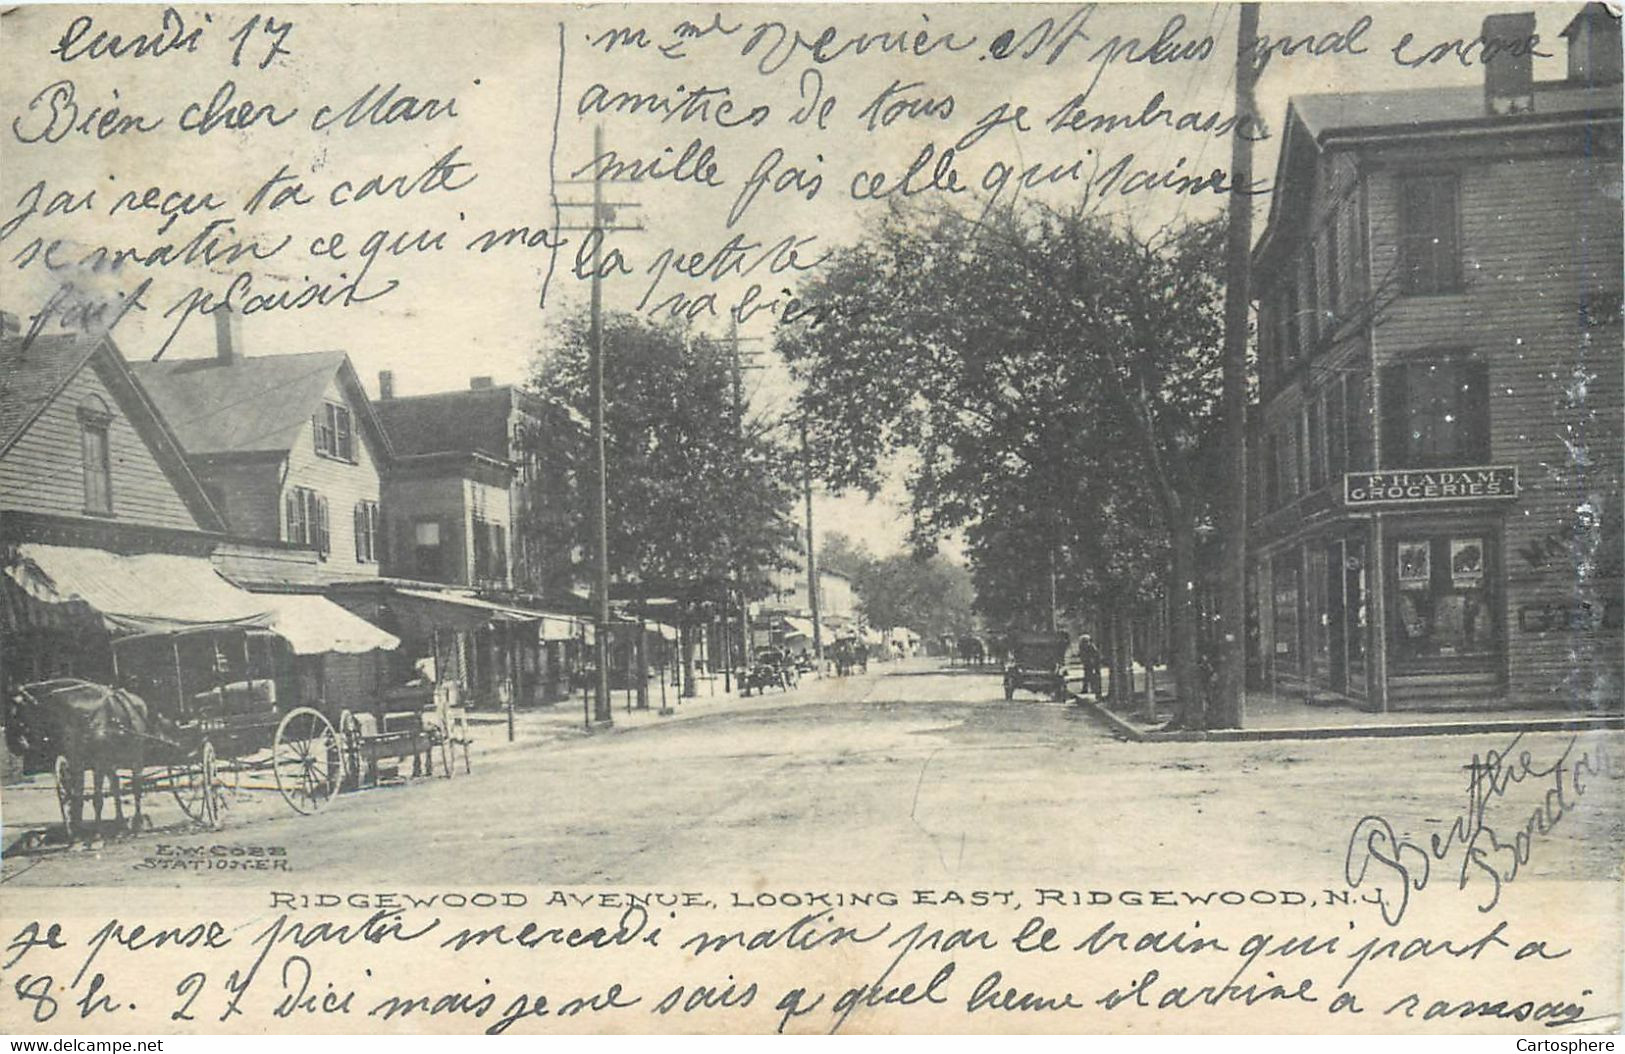 lundi 17
Bien cher Mari
jai reçu ta carte
se matin ce qui ma
fait plaisir
mme Vernier est plus mal encore
amities de tous je tembrasse
mille fois celle qui taime
la petite
va bien
F. H. ADAM
GROCERIES
E. W. COBB
STATIONER.
Bèrthe
RIDGEWOOD AVENUE, LOOKING EAST, RIDGEWOOD, N.J.
je pense partir mercredi matin par le train qui part a
8 h. 27 Dici mais je ne sais a quel heure il arrive a
CARTOSPHERE.COM
Cartosphere